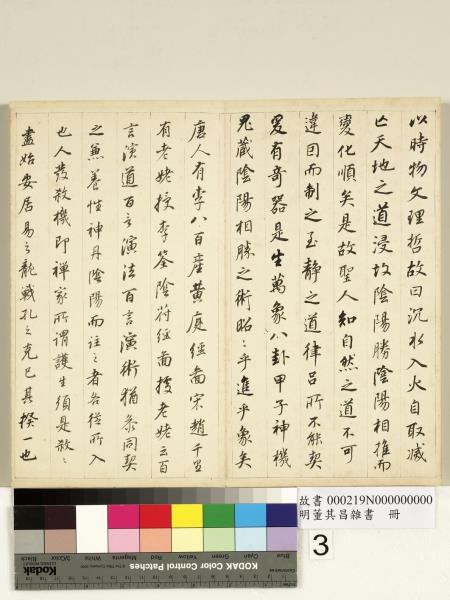 以時物文理哲故曰沉水入火自取滅
亡天地之道浸故陰陽勝陰陽相推而
變化順矣是故聖人知自然之道不可
違因而制之至静之道律呂所不能契
爰有奇器是生萬象八卦甲子神機
鬼藏陰陽相勝之術昭〻乎進乎象矣
唐人有李八百產黃庭經畵宋趙千里
有老姥授李筌陰符經畵授老姥云百
言演道百言演法百言演術猶參同契
之無養性神丹陰陽而註之者各從所入
也人發殺機即禪家所謂護生須是殺〻
盡始安居易之龍戰孔之克已其揆一也
故書 000219N000000000
明董其昌雜書 冊
3
Blue
Cyan
Green
Yellow
Red
Magenta
White
3/Color
Black
KODAK Color Control Patches
Kodak